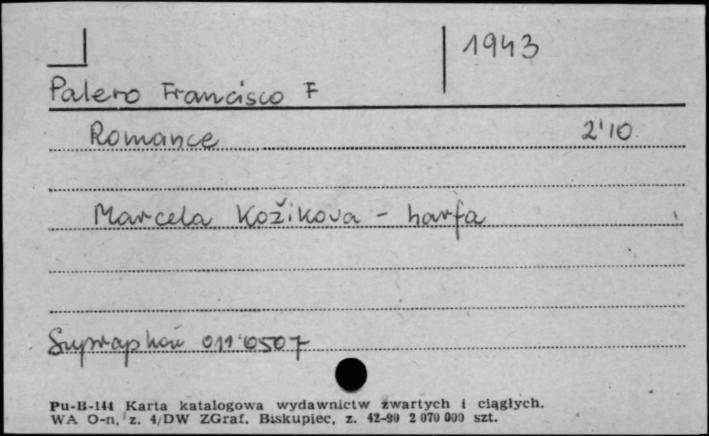 1943
Palero Francisco F
Romance 2'10
Marcela Kožikova - harfa
Supraphon 011 0507
Pu-B-144 Karta katalogowa wydawnictw zwartych i ciągłych.
WA O-n, z. 4/DW ZGraf. Biskupiec, z. 42-90 2 070 000 szt.